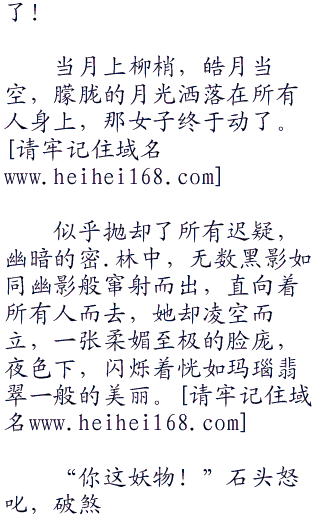 了！
当月上柳梢，皓月当
空，朦胧的月光洒落在所有
人身上，那女子终于动了。
[请牢记住域名
www.heihei168.com]
似乎抛却了所有迟疑，
幽暗的密.林中，无数黑影如
同幽影般窜射而出，直向着
所有人而去，她却凌空而
立，一张柔媚至极的脸庞，
夜色下，闪烁着恍如玛瑙翡
翠一般的美丽。[请牢记住域
名www.heihei168.com]
“你这妖物！”石头怒
叱，破煞